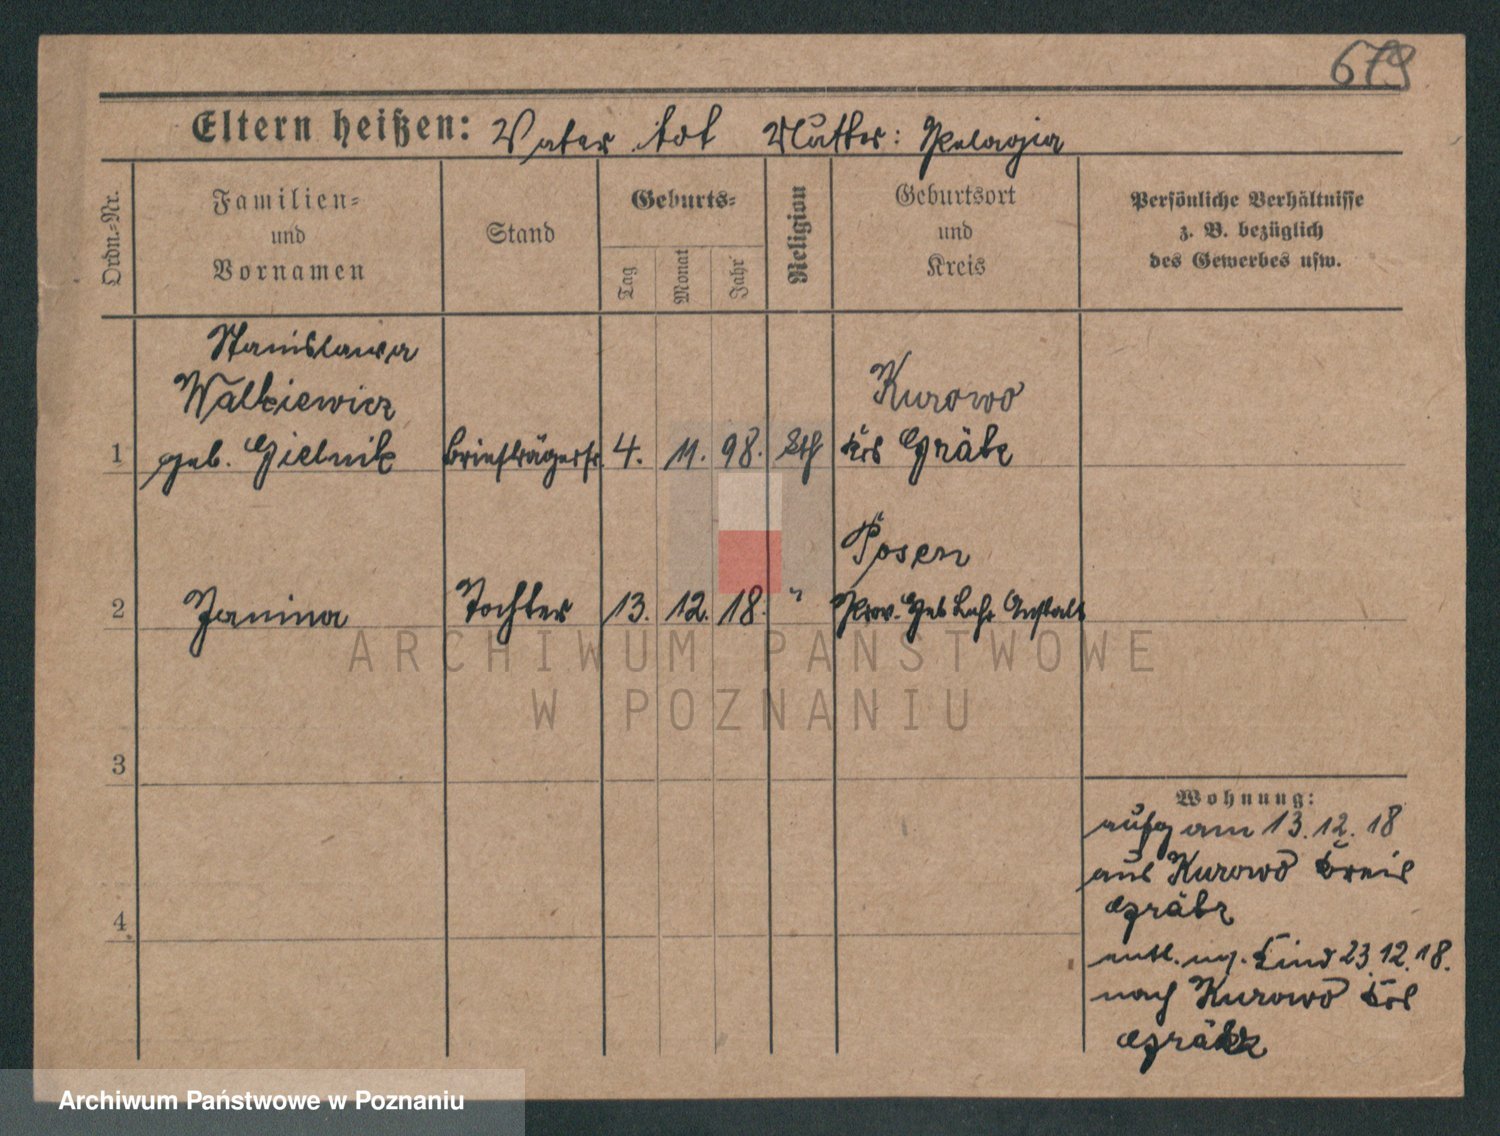 679
Eltern heißen: Vater tot Mutter: Pelagia
Ordn.-Nr.
Familien-
und
Vornamen
Stand
Geburts-
Tag
Monat
Jahr
Religion
Geburtsort
und
Kreis
Persönliche Verhältnisse
z. B. bezüglich
des Gewerbes usw.
Stanislawa
Walkiewicz
1 geb. Gielnik Briefträgerfr. 4. 11. 98. kth
Kurowo
Krs Grätz
2 Janina Tochter 13. 12. 18. "
Posen
Prov. Heb Lehr Anstalt
3
4
Wohnung:
aufg am 13.12.18
aus Kurowo Kreis
Grätz
entl. m. Kind 23.12.18.
nach Kurowo Krs
Grätz
ARCHIWUM PAŃSTWOWE
W POZNANIU
Archiwum Państwowe w Poznaniu